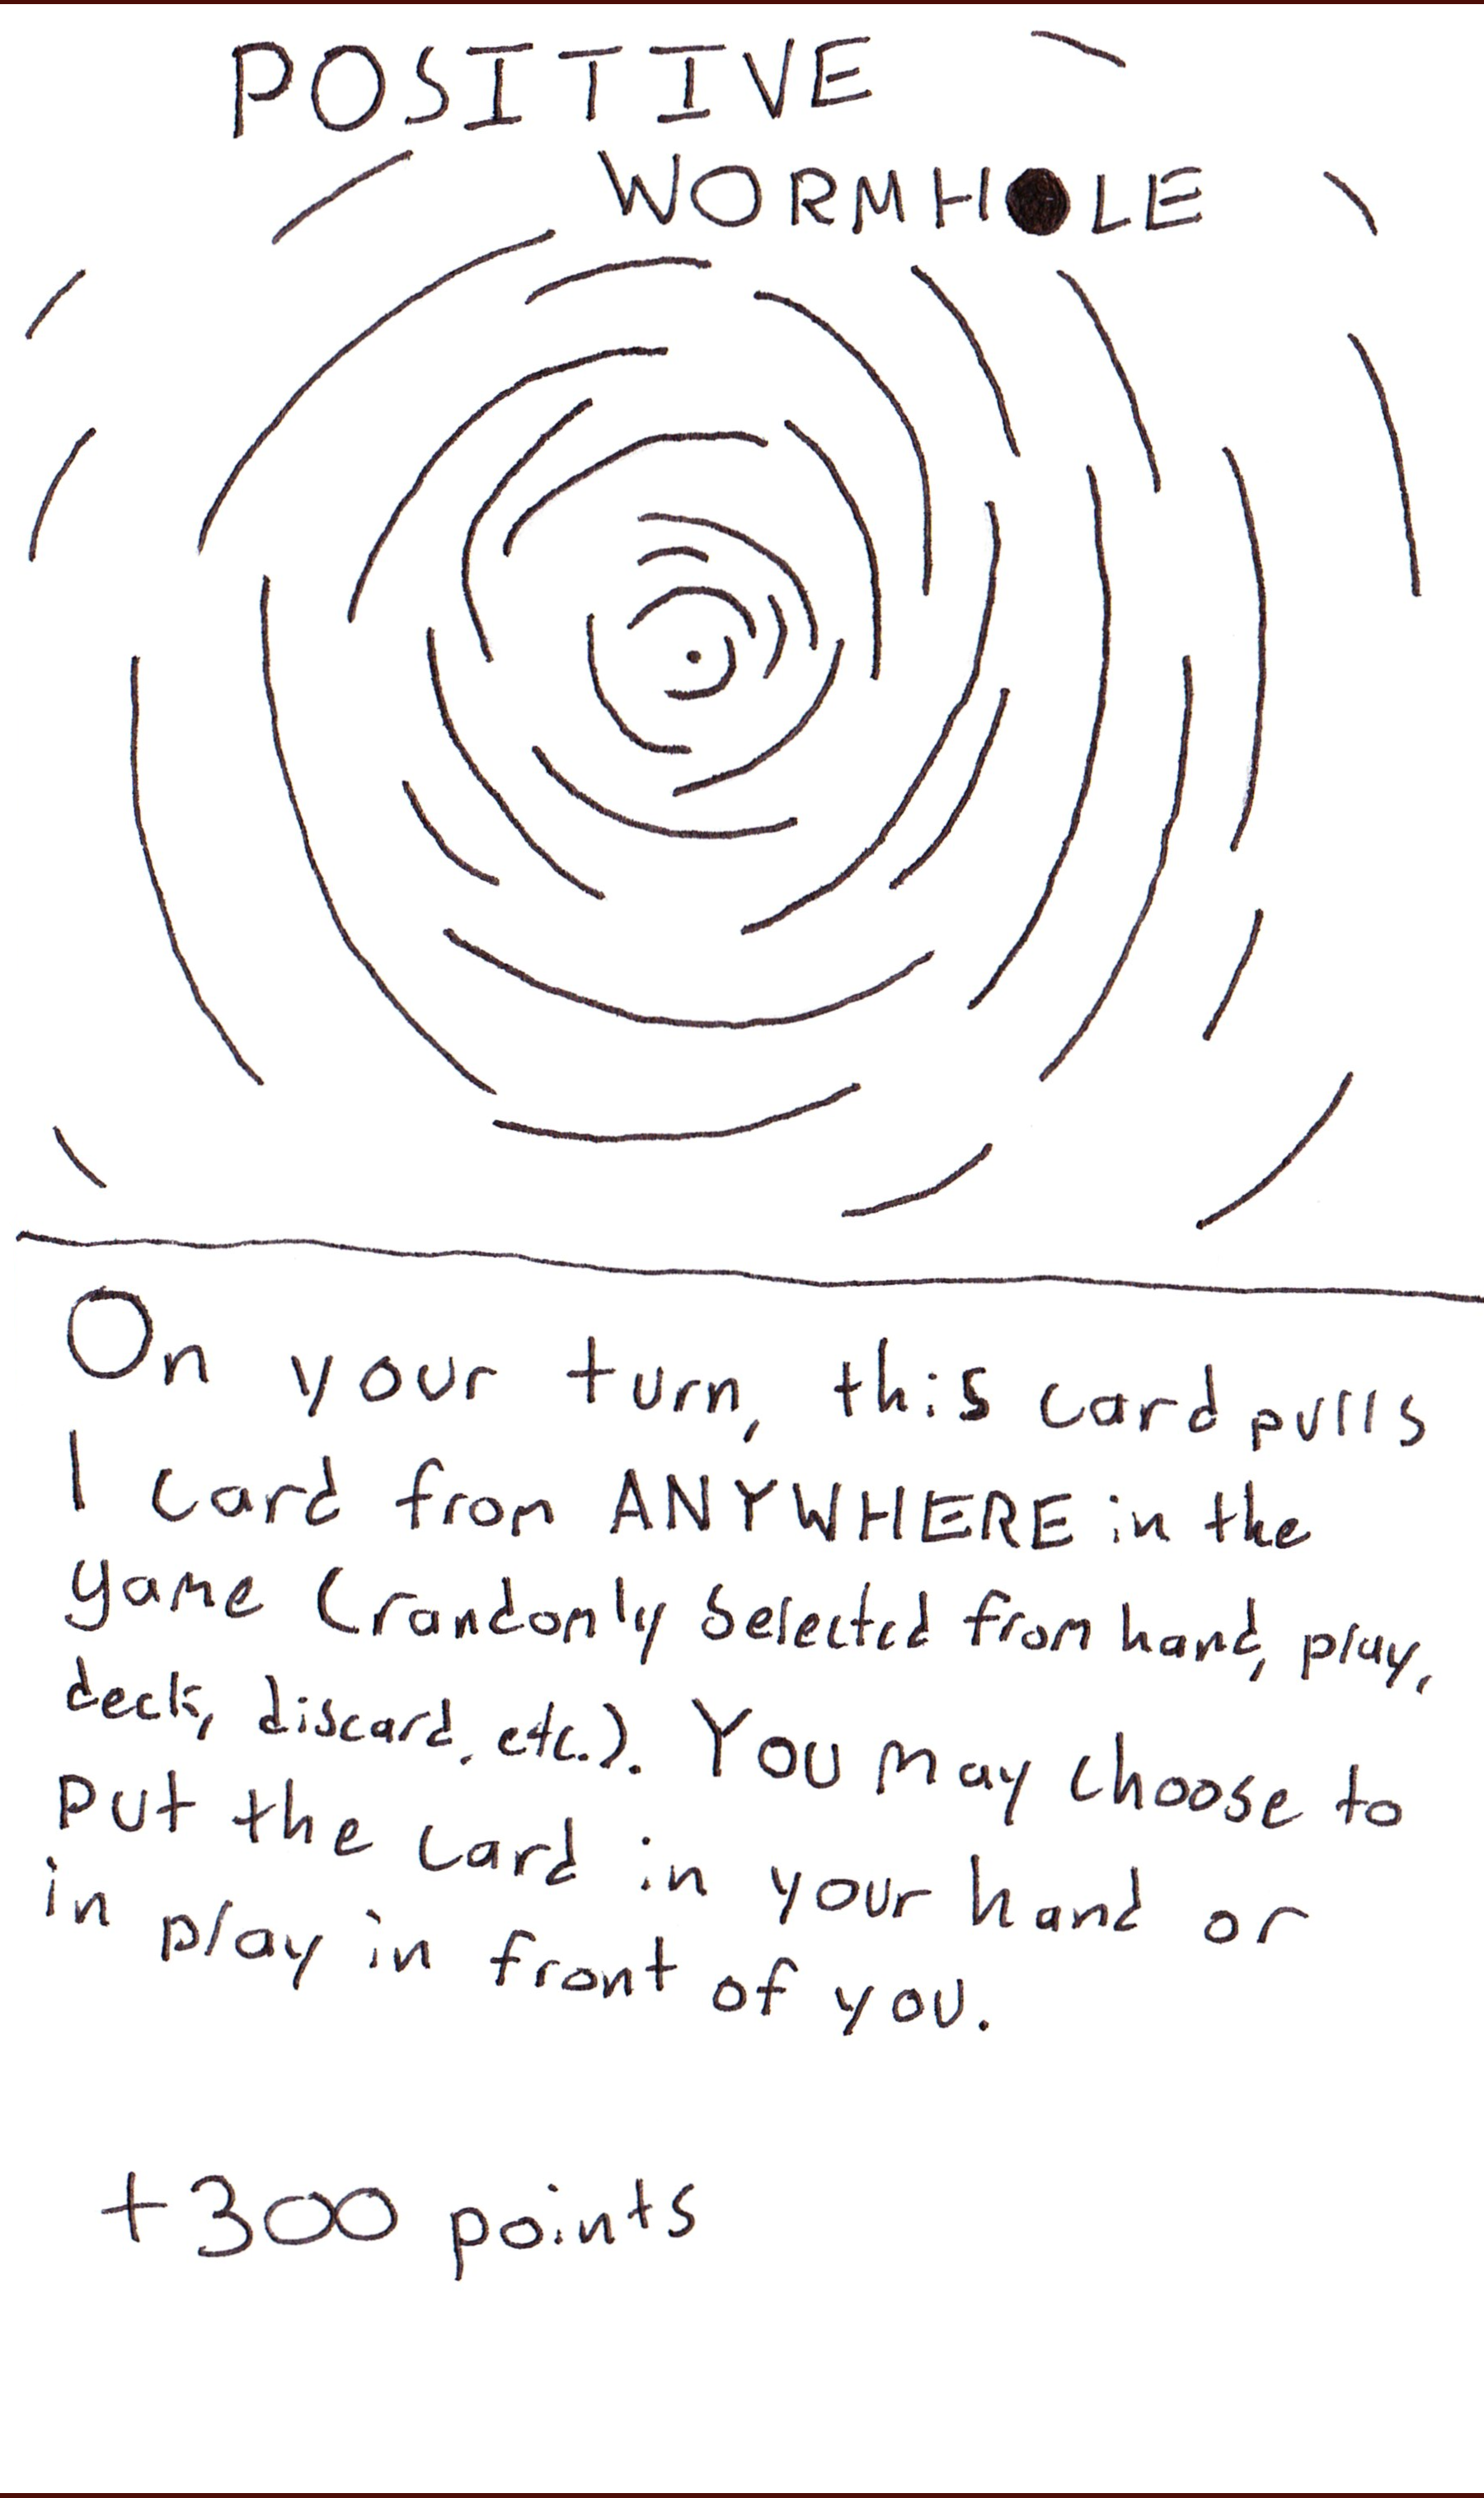 POSITIVE
WORMHOLE
On your turn, this card pulls
1 card from ANYWHERE in the
game (randomly selected from hand, play,
deck, discard, etc.). You may choose to
put the card in your hand or
in play in front of you.
+300 points